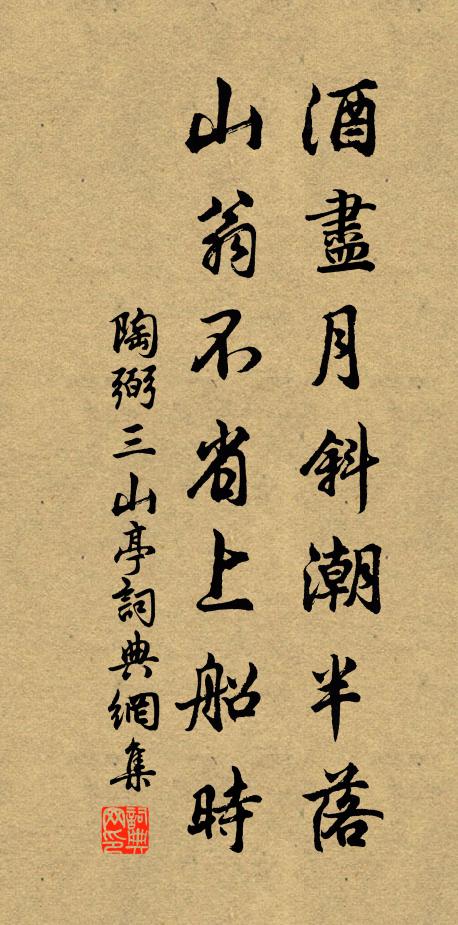 酒盡月斜潮半落
山翁不省上船時
陶弼三山亭詞典網集
詞典網印